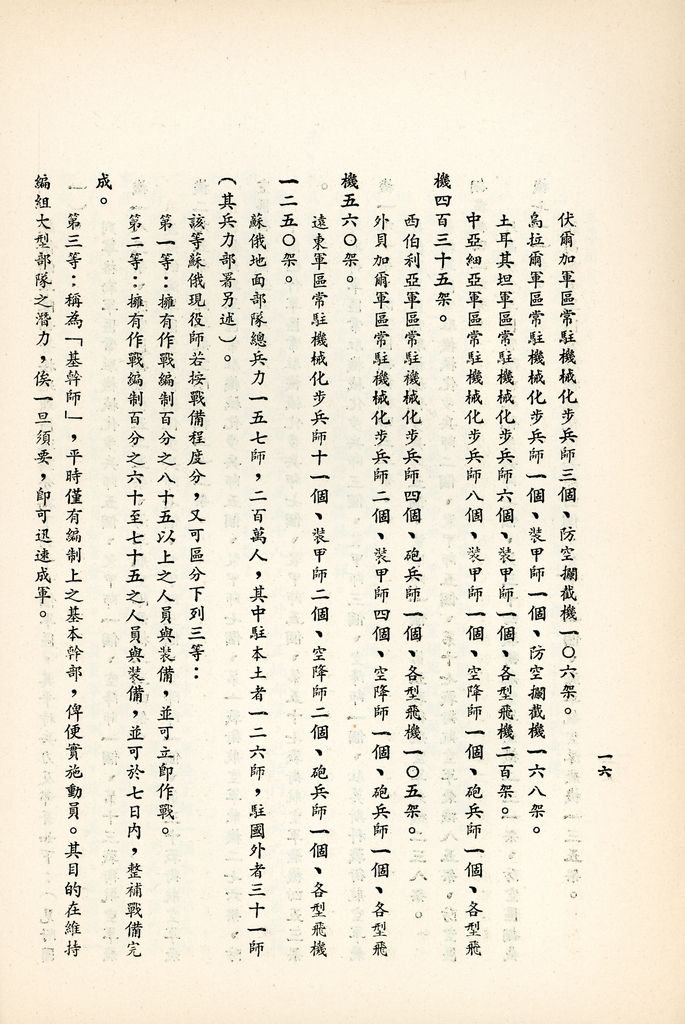 伏爾加軍區常駐機械化步兵師三個、防空攔截機一〇六架。
烏拉爾軍區常駐機械化步兵師一個、裝甲師一個、防空攔截機一六八架。
土耳其坦軍區常駐機械化步兵師六個、裝甲師一個、各型飛機二百架。
中亞細亞軍區常駐機械化步兵師八個、裝甲師一個、空降師一個、砲兵師一個、各型飛
機四百三十五架。
西伯利亞軍區常駐機械化步兵師四個、砲兵師一個、各型飛機一〇五架。
外貝加爾軍區常駐機械化步兵師二個、裝甲師四個、空降師一個、砲兵師一個、各型飛
機五六〇架。
遠東軍區常駐機械化步兵師十一個、裝甲師二個、空降師二個、砲兵師一個、各型飛機
一二五〇架。
蘇俄地面部隊總兵力一五七師，二百萬人，其中駐本土者一二六師，駐國外者三十一師
（其兵力部署另述）。
該等蘇俄現役師若按戰備程度分，又可區分下列三等：
第一等：擁有作戰編制百分之八十五以上之人員與裝備，並可立即作戰。
第二等：擁有作戰編制百分之六十至七十五之人員與裝備，並可於七日內，整補戰備完
成。
第三等：稱為「基幹師」，平時僅有編制上之基本幹部，俾便實施動員。其目的在維持
編組大型部隊之潛力，俟一旦須要，即可迅速成軍。
一六